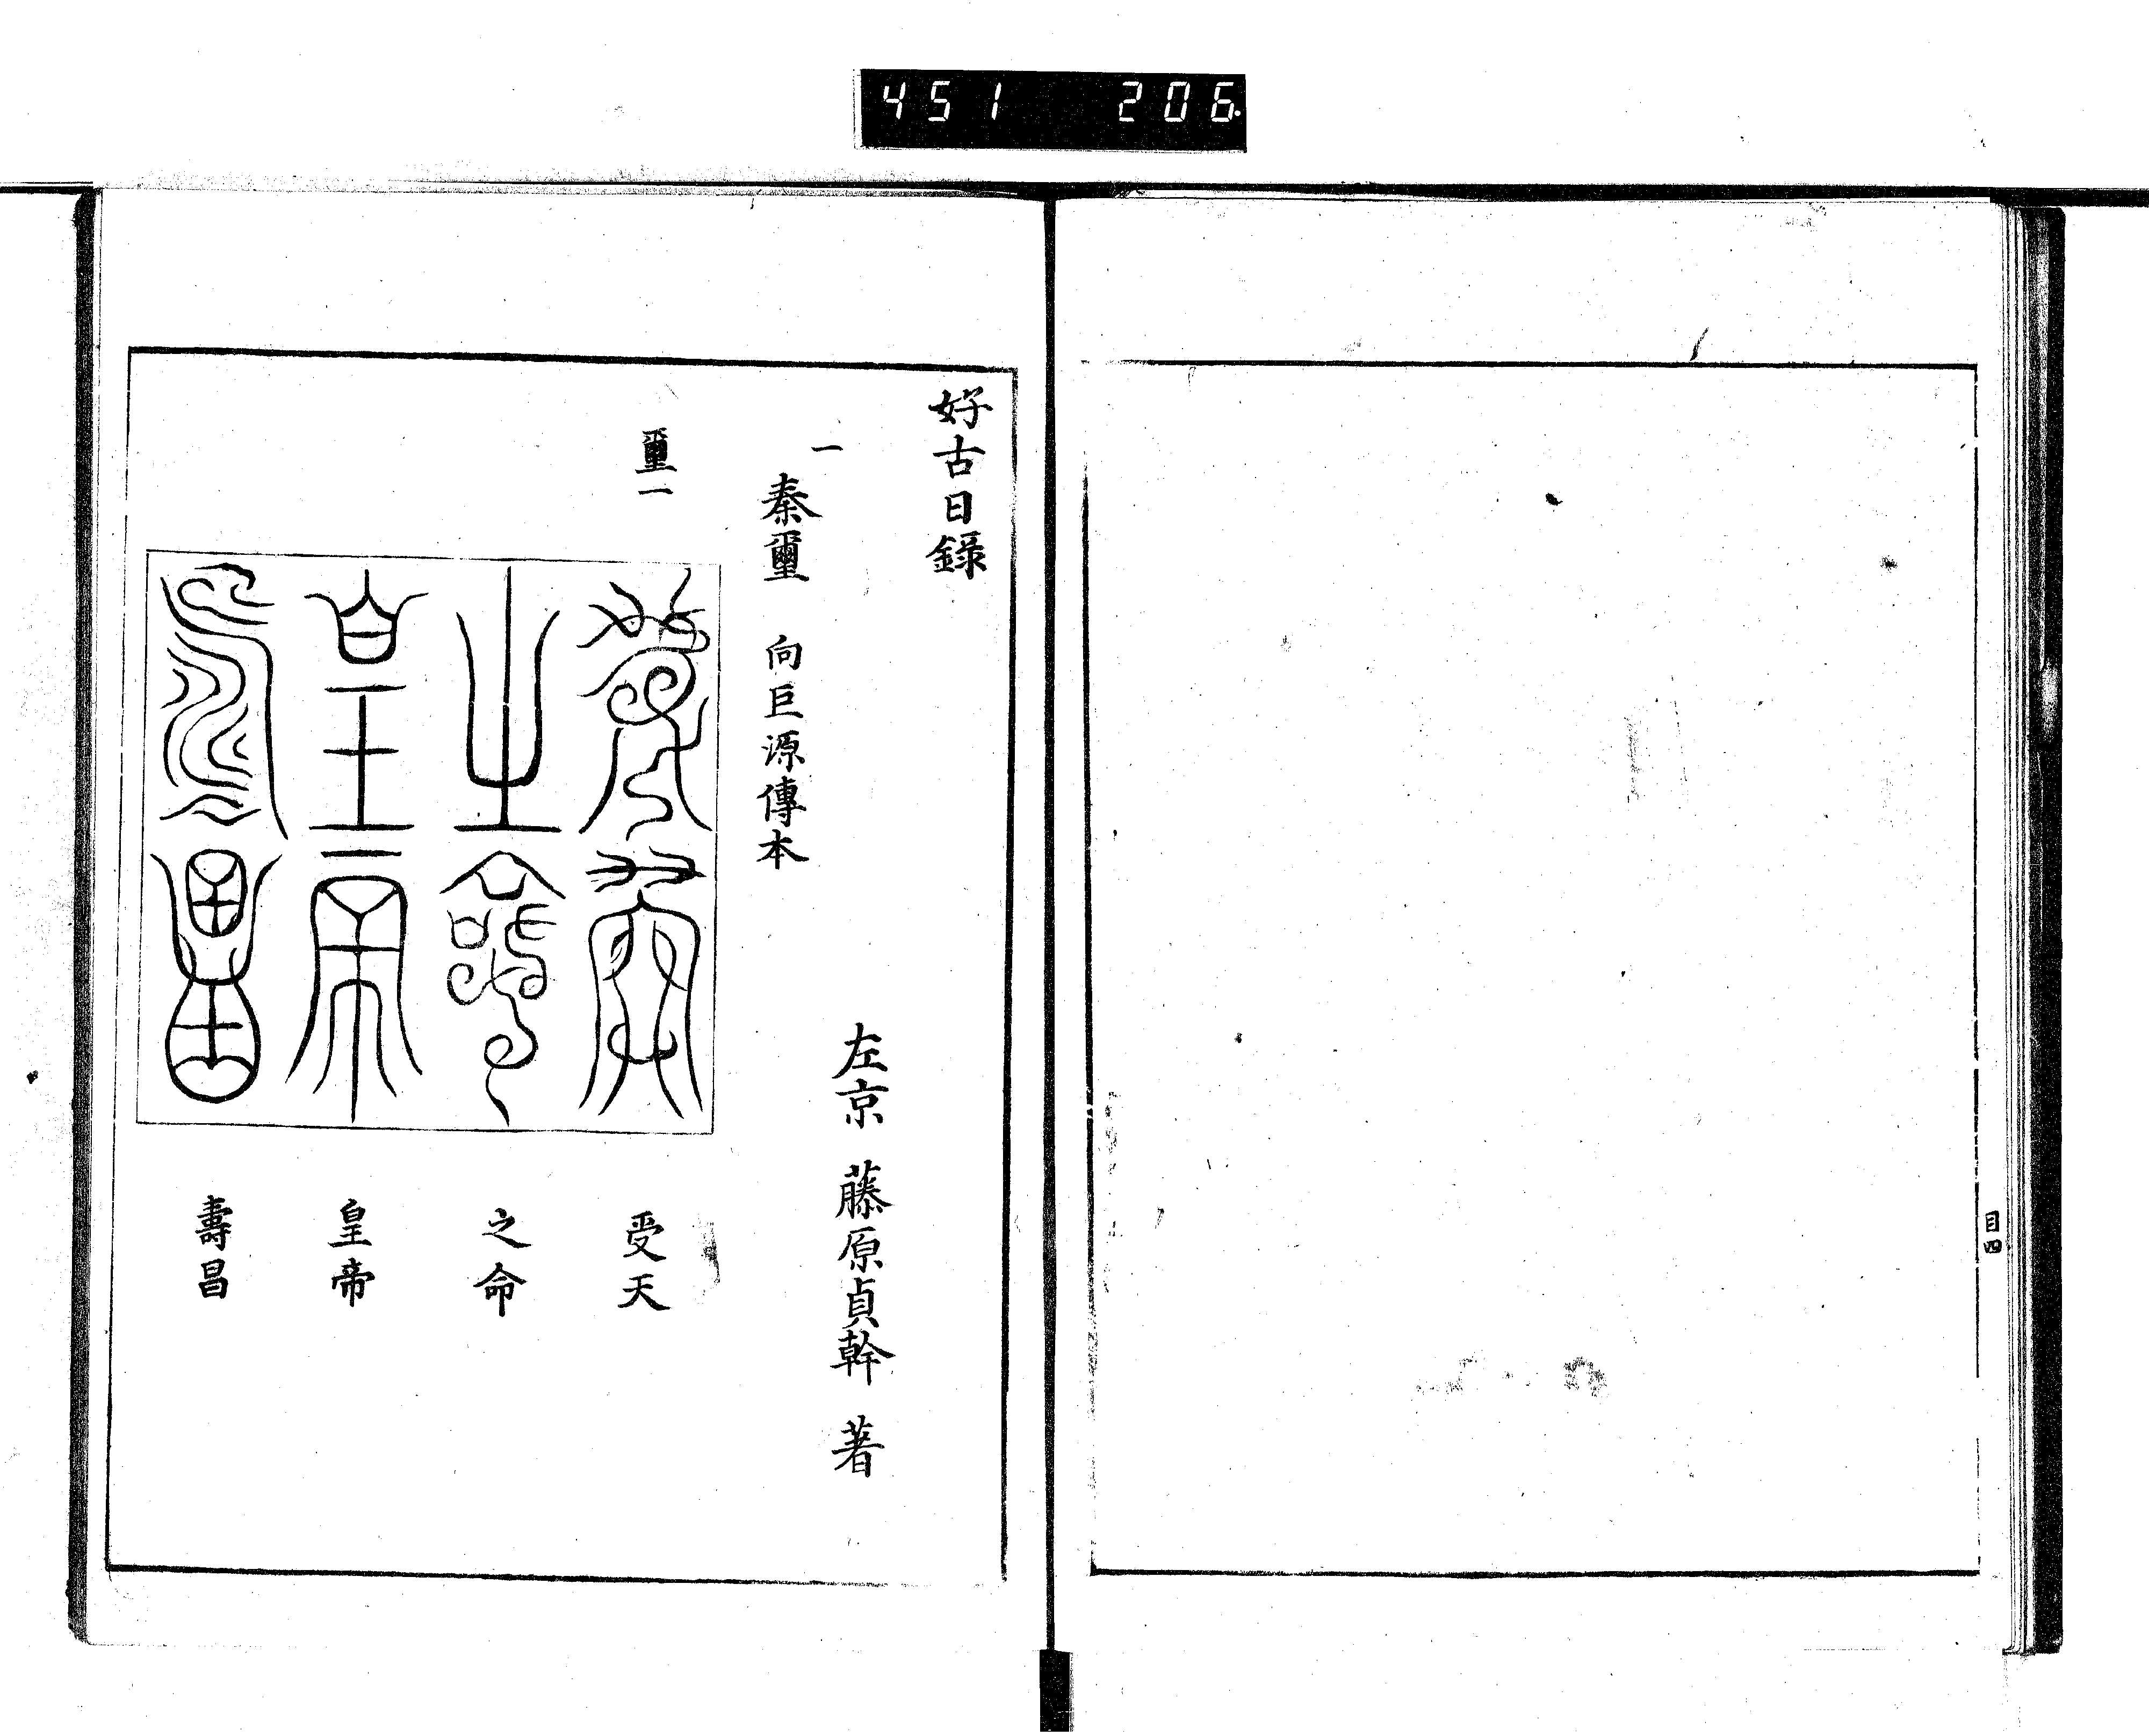 451 206
目四
好古日録
左京 藤原貞幹 著
一
秦璽 向巨源傳本
璽一
受天
之命
皇帝
壽昌